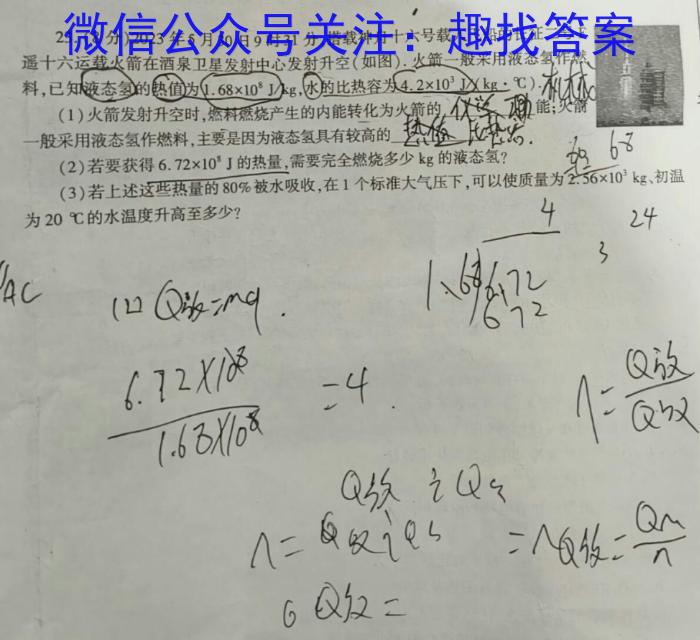 微信公众号关注：趣找答案
遥十六运载火箭在酒泉卫星发射中心发射升空(如图).火箭一般采用液态氢作燃
料,已知液态氢的热值为1.68×10⁸ J/kg,水的比热容为4.2×10³ J/(kg·℃).机械
(1)火箭发射升空时,燃料燃烧产生的内能转化为火箭的 能;火箭
一般采用液态氢作燃料,主要是因为液态氢具有较高的 热值
(2)若要获得6.72×10⁸ J的热量,需要完全燃烧多少kg的液态氢?
68
(3)若上述这些热量的80%被水吸收,在1个标准大气压下,可以使质量为2.56×10³ kg、初温
为20 ℃的水温度升高至多少?
4 24
3
AC (2) Q放=mq. 1.68 6.72
672
6.72×10⁸
=4.
1.68×10⁸
η= Q放
Q吸
Q放
η=
Q放=
Q吸=